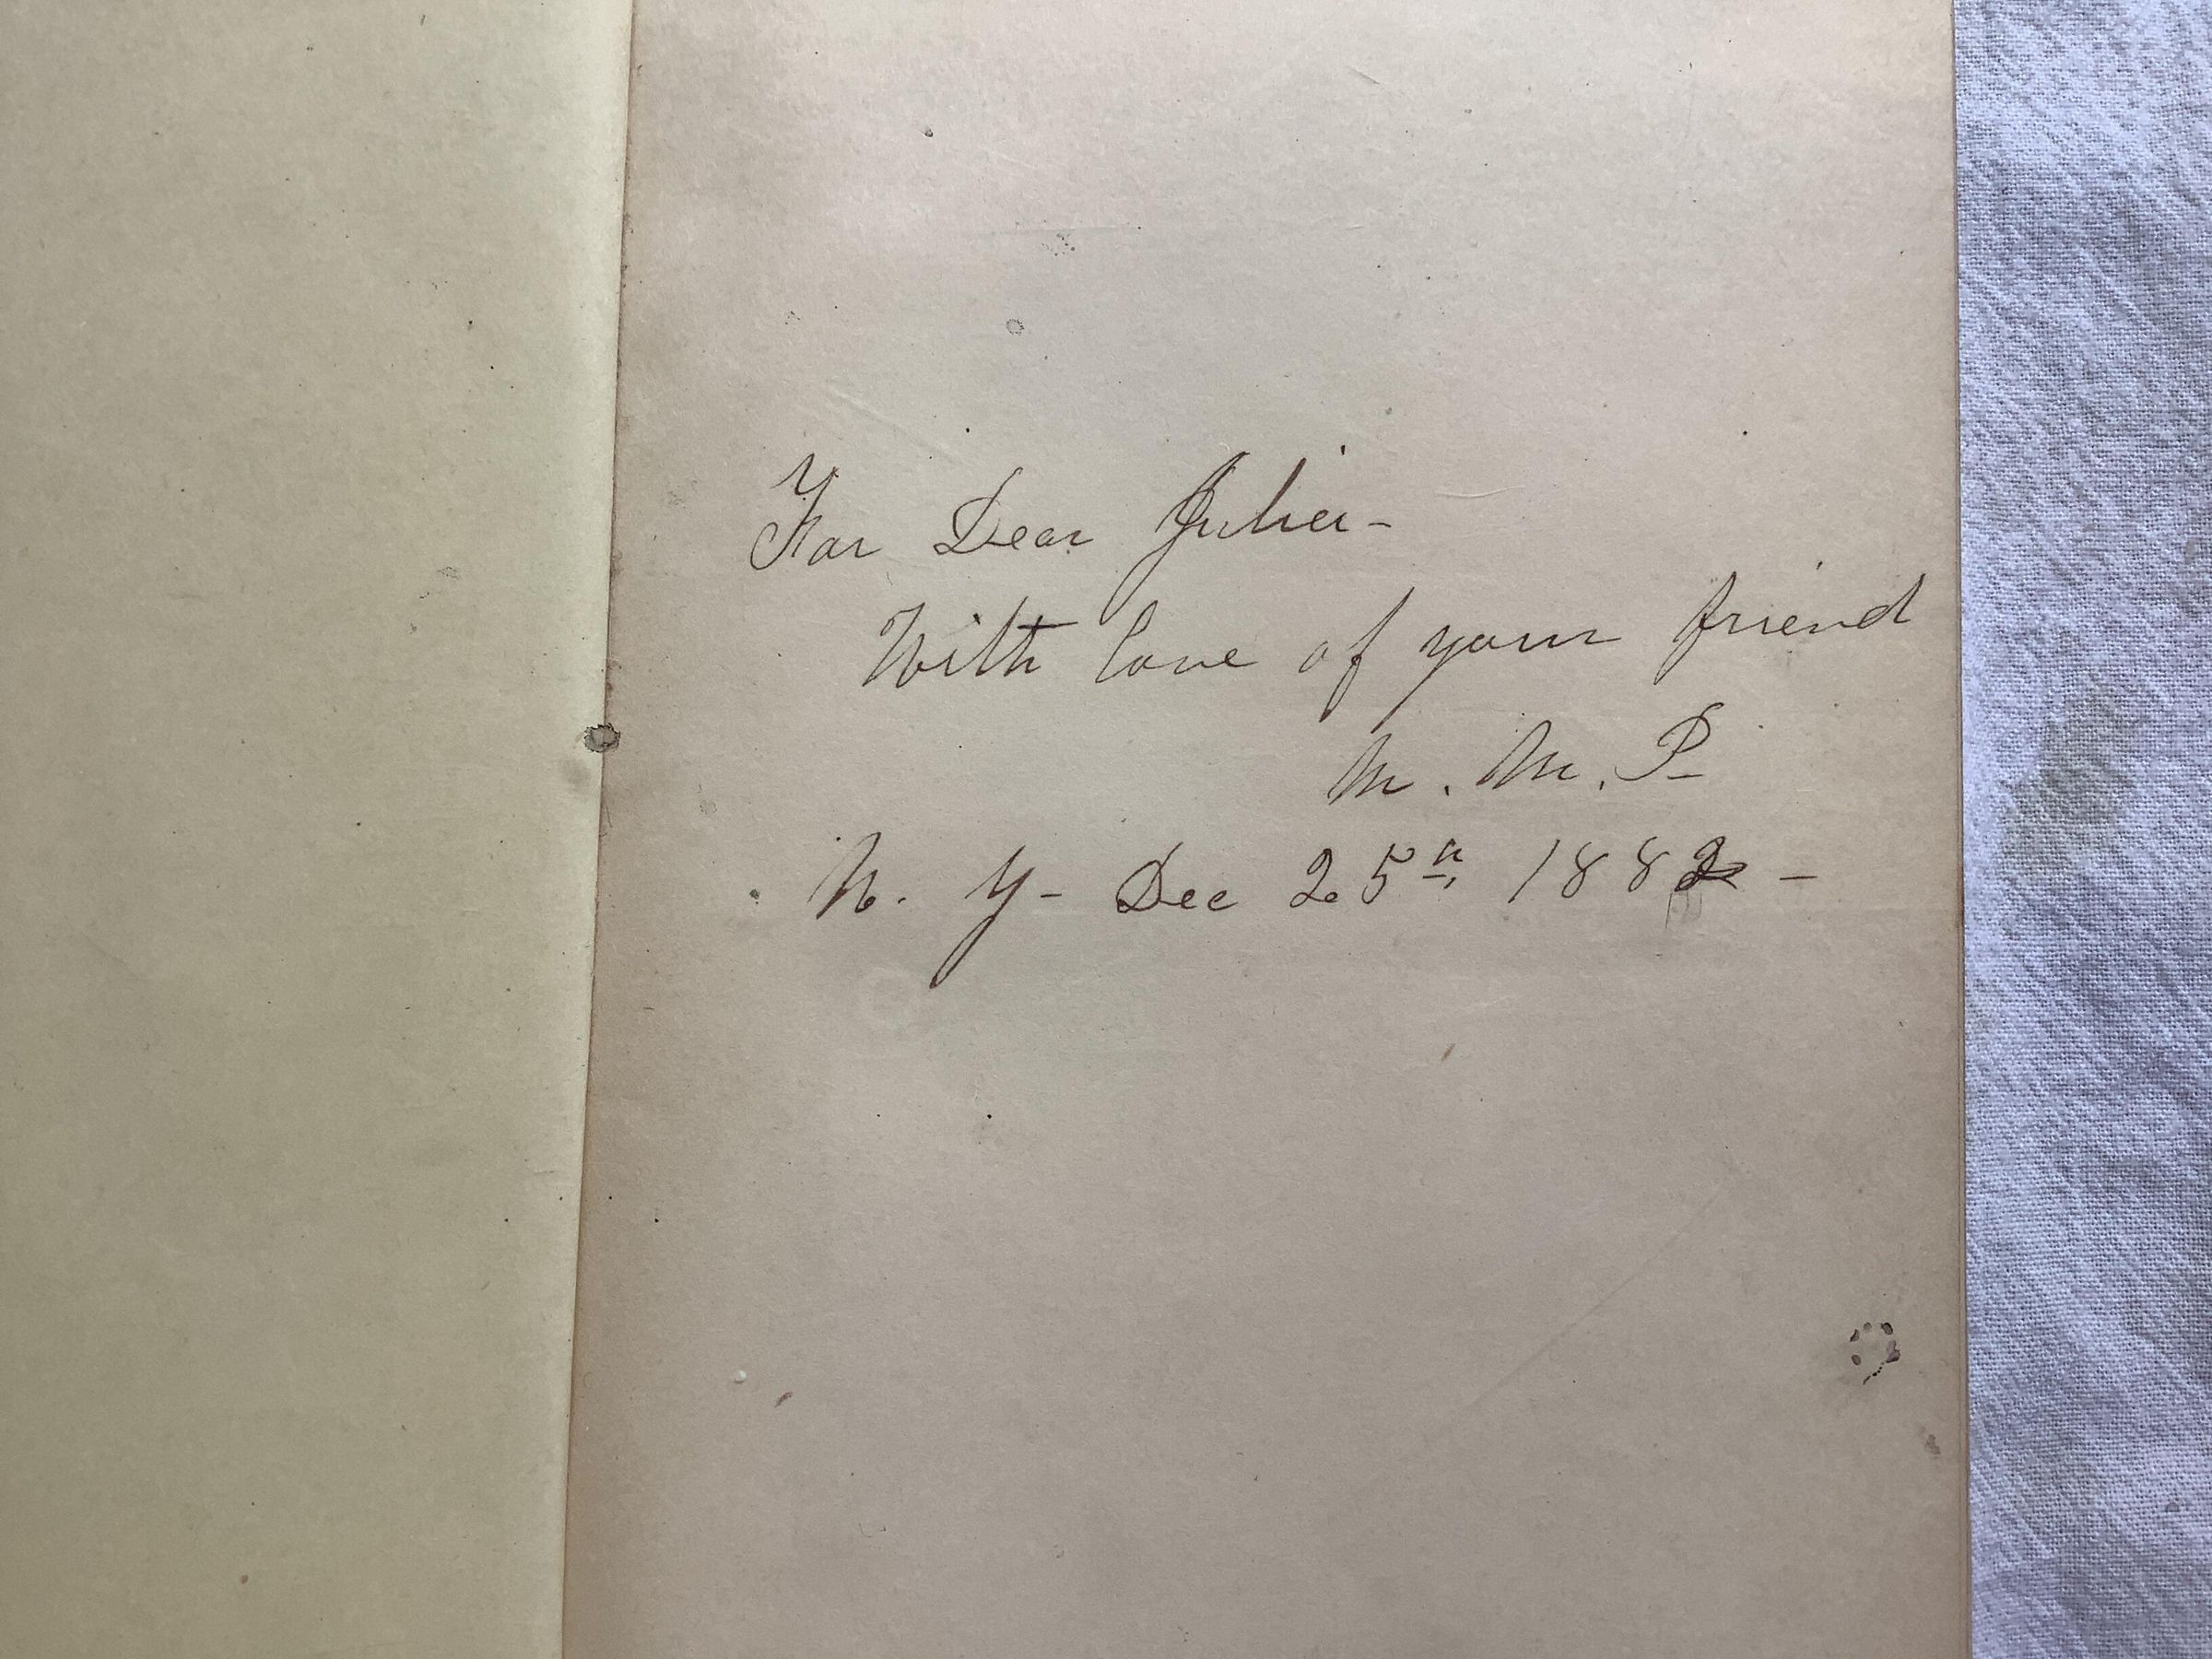 For Dear Julia-
With love of your friend
M. M. P-
N. Y- Dec 25th 1882-